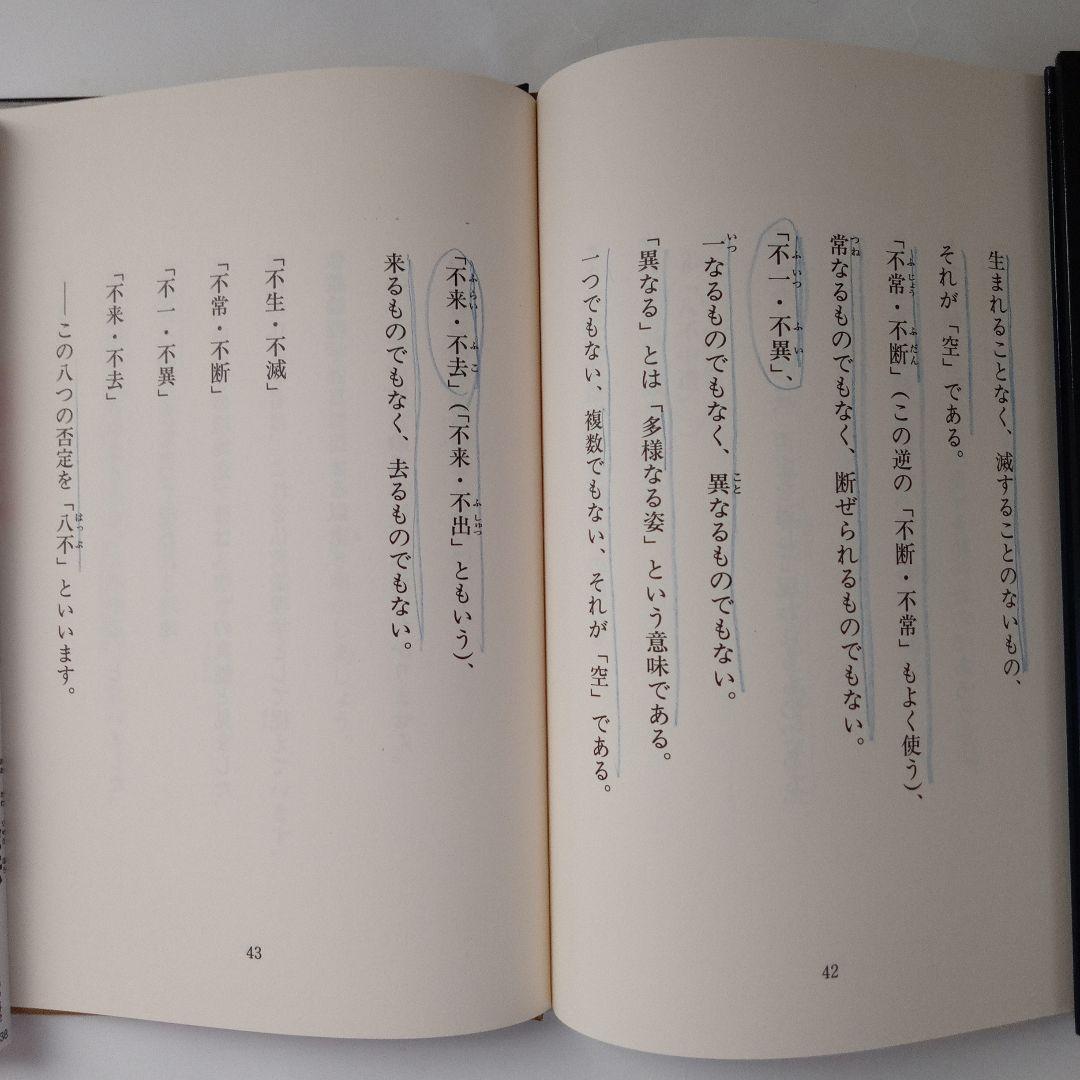 生まれることなく、滅することのないもの、
それが「空」である。
「不常・不断」（この逆の「不断・不常」もよく使う）、
常なるものでもなく、断ぜられるものでもない。
「不一・不異」、
一なるものでもなく、異なるものでもない。
「異なる」とは「多様なる姿」という意味である。
一つでもない、複数でもない、それが「空」である。
42
「不来・不去」（「不来・不出」ともいう）、
来るものでもなく、去るものでもない。
「不生・不滅」
「不常・不断」
「不一・不異」
「不来・不去」
――この八つの否定を「八不」といいます。
43